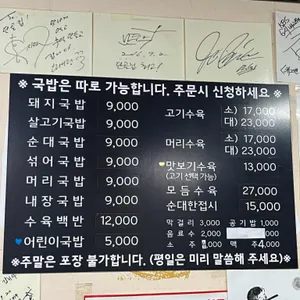 ※ 국밥은 따로 가능합니다. 주문시 신청하세요 ※
돼지국밥 9,000
살고기국밥 9,000
순대국밥 9,000
섞어국밥 9,000
머리국밥 9,000
내장국밥 9,000
수육백반 12,000
어린이국밥 5,000
고기수육 소) 17,000
대) 23,000
머리수육 소) 17,000
대) 23,000
맛보기수육 13,000
(고기 선택 가능)
모듬수육 27,000
순대한접시 15,000
막걸리 3,000 공기밥 1,000
음료수 2,000
소주 맥주 4,000
※주말은 포장 불가합니다. (평일은 미리 말씀해 주세요)※